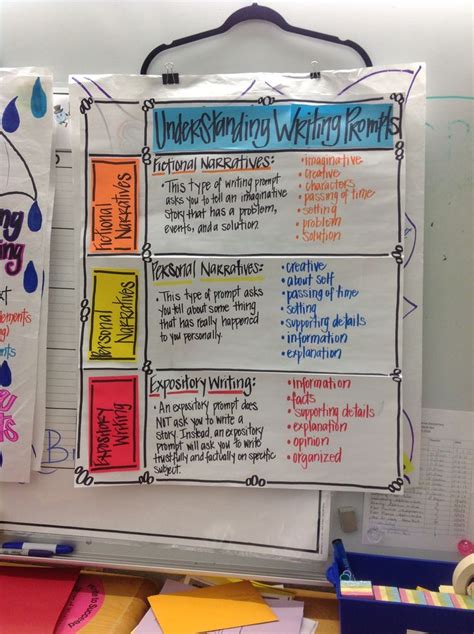 Understanding Writing Prompts
Fictional Narratives
Fictional Narratives:
• This type of writing prompt
asks you to tell an imaginative
story that has a problem,
events, and a solution.
• imaginative
• creative
• characters
• passing of time
• setting
• problem
• solution
Personal Narratives
Personal Narratives:
• This type of prompt asks
you tell about some thing
that has really happened
to you personally.
• creative
• about self
• passing of time
• setting
• supporting details
• information
• explanation
Expository Writing
Expository Writing:
• An expository prompt does
NOT ask you to write a
story. Instead, an expository
prompt will ask you to write
trustfully and factually on specific
subject.
• information
• facts
• supporting details
• explanation
• opinion
• organized